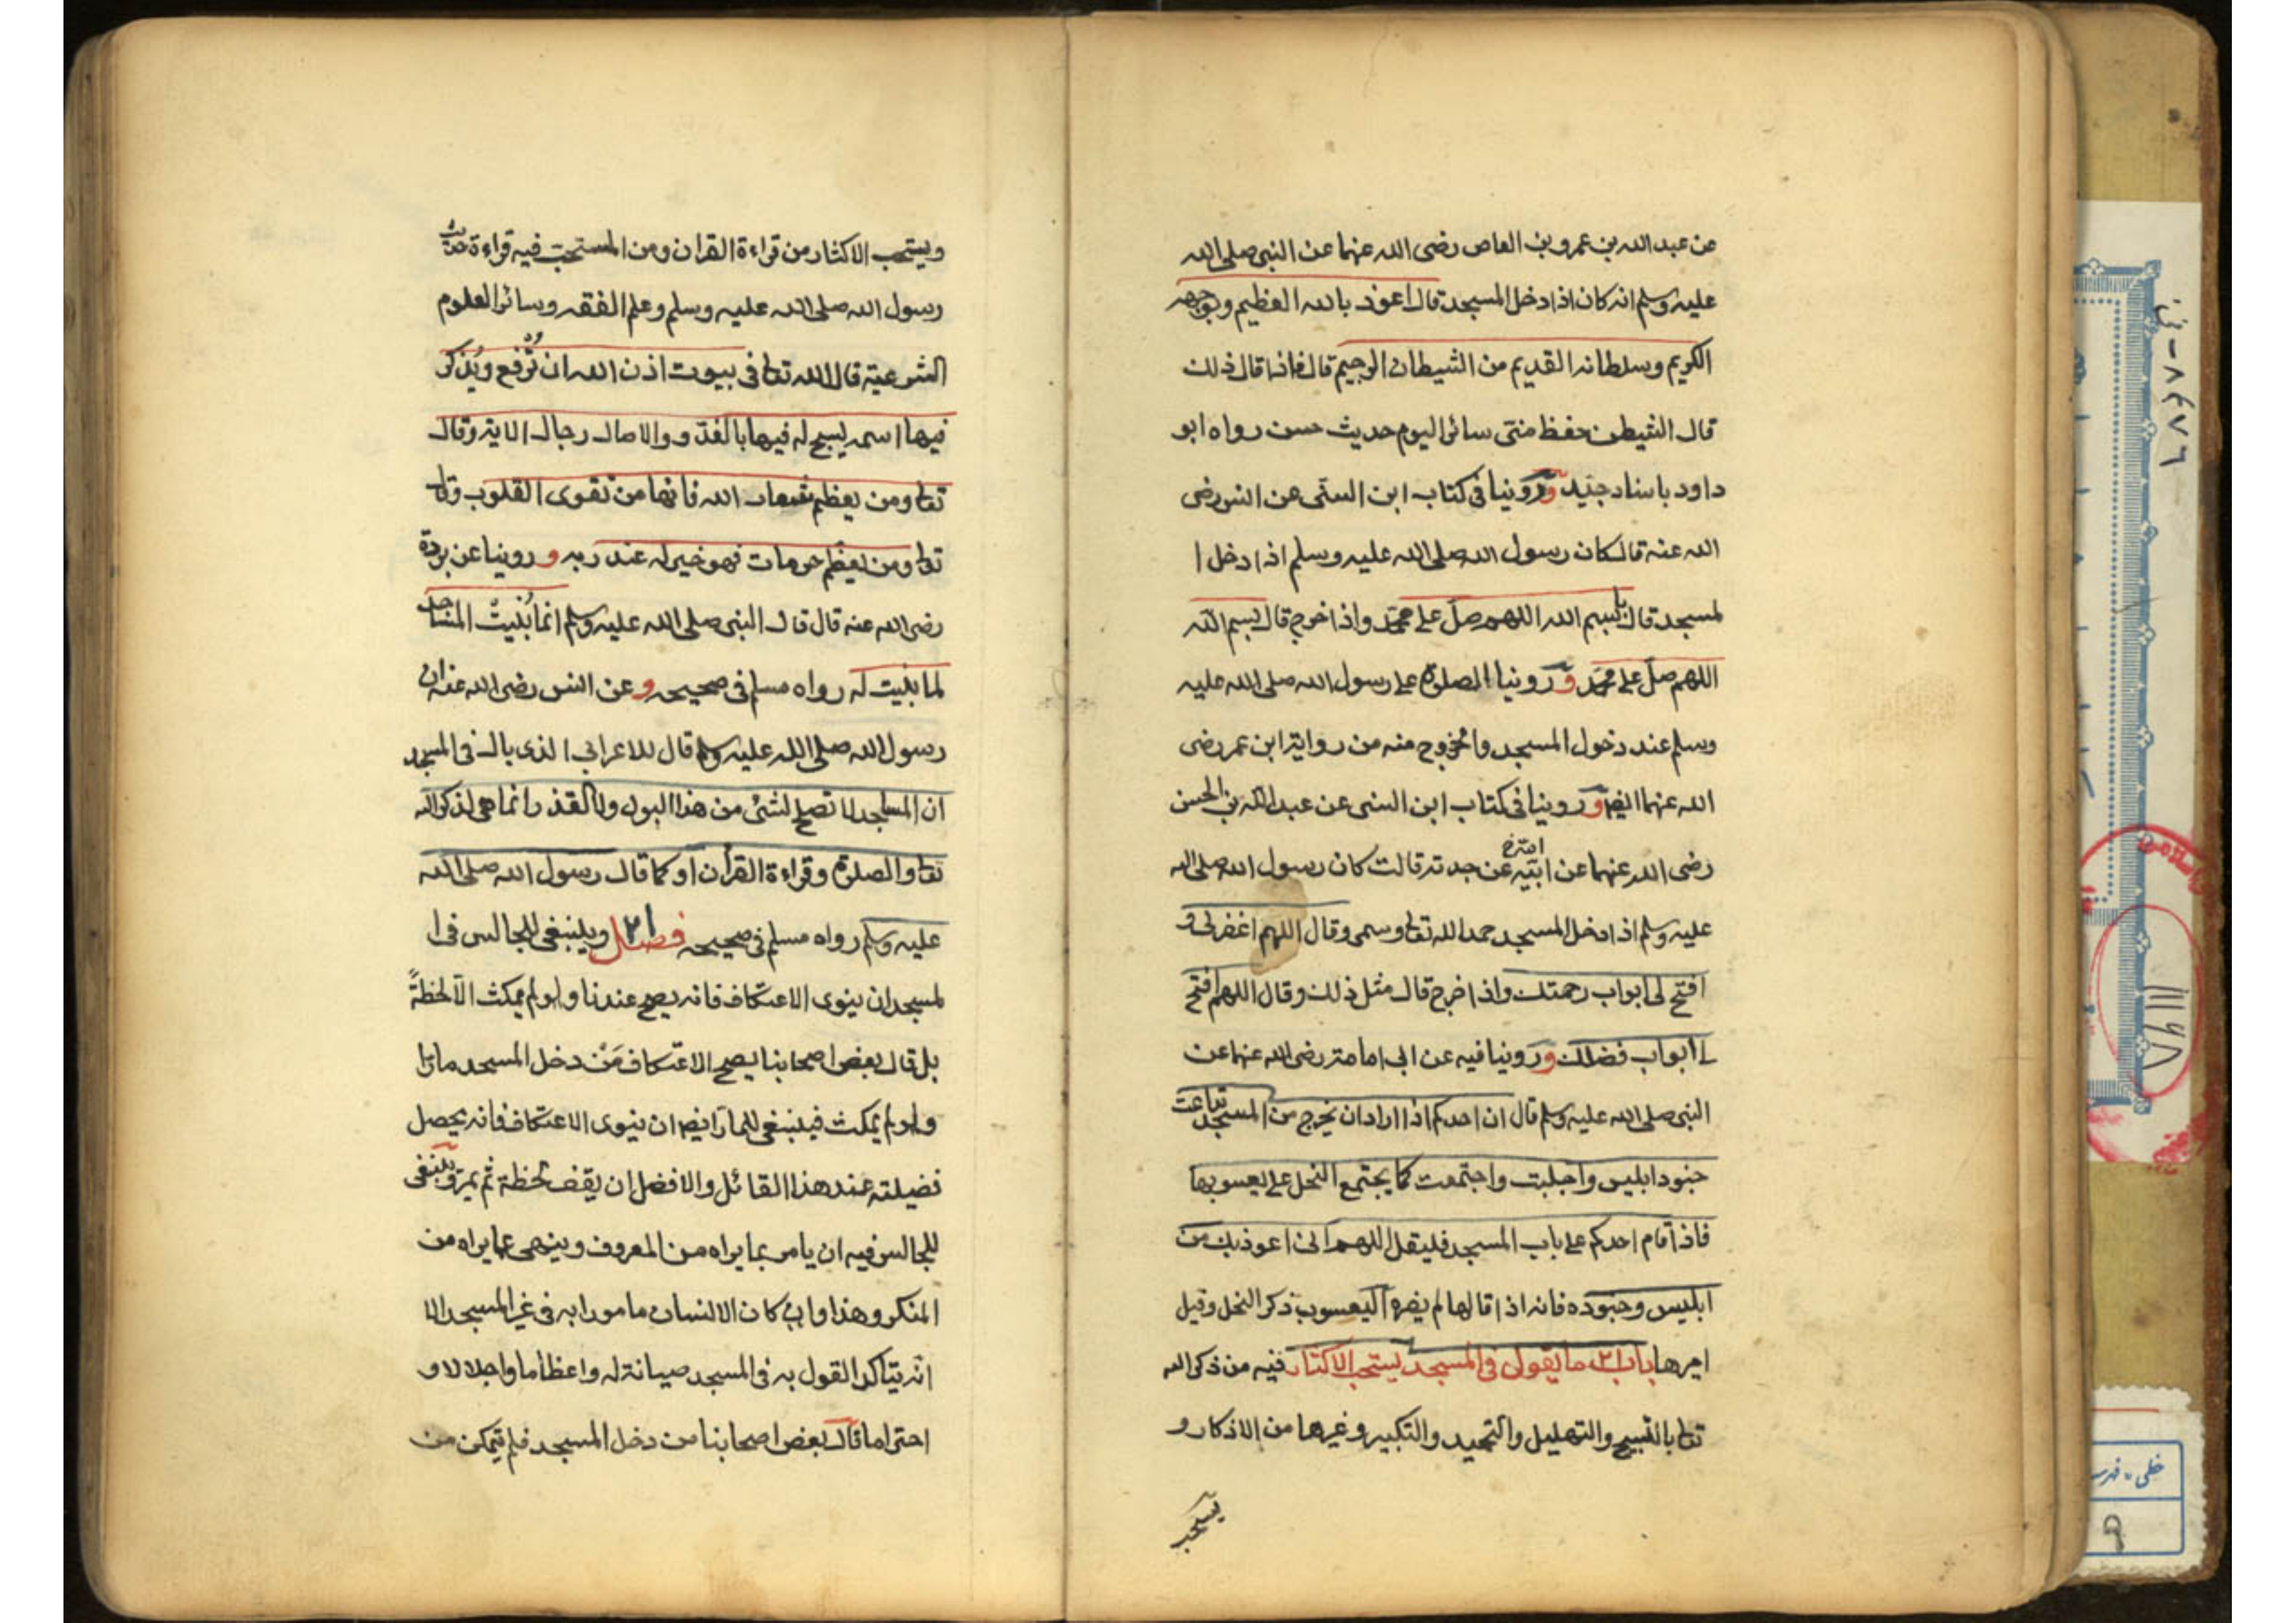 عن عبد الله بن عمرو بن العاص رضى الله عنهما عن النبى صلى الله
عليه وسلم انه كان اذا دخل المسجد قال اعوذ بالله العظيم وبوجهه
الكريم وسلطانه القديم من الشيطان الرجيم قال فاذا قال ذلك
قال الشيطن حفظ منى سائر اليوم حديث حسن رواه ابو
داود باسناد جيد وروينا فى كتاب ابن السنى عن انس رضى
الله عنه قال كان رسول الله صلى الله عليه وسلم اذا دخل ا
لمسجد قال بسم الله اللهم صل على محمد واذا خرج قال بسم الله
اللهم صل على محمد وروينا الصلوة على رسول الله صلى الله عليه
وسلم عند دخول المسجد والخروج منه من رواية ابن عمر رضى
الله عنهما ايضا وروينا فى كتاب ابن السنى عن عبد الله بن الحسن
رضى الله عنهما عن عن جدته قالت كان رسول الله صلى الله
عليه وسلم اذا دخل المسجد حمد الله تعا وسمى وقال اللهم اغفر لى و
افتح لى ابواب رحمتك واذا خرج قال مثل ذلك وقال اللهم افتح
لى ابواب فضلك وروينا فيه عن ابى امامة رضى الله عنهما عن
النبى صلى الله عليه وسلم قال ان احدكم اذا اراد ان يخرج من المسجد تداعت
جنود ابليس واجلبت واجتمعت كما يجتمع النحل على يعسوبها
فاذا قام احدكم على باب المسجد فليقل اللهم انى اعوذ بك من
ابليس وجنوده فانه اذا قالها لم يضره اليعسوب ذكر النحل وقيل
اميرها باب ما يقول فى المسجد يستحب الاكثار فيه من ذكر الله
تعا بالتسبيح والتهليل والتحميد والتكبير وغيرها من الاذكار و
يستحب
ويستحب الاكثار من قراءة القران ومن المستحب فيه قراءة حديث
رسول الله صلى الله عليه وسلم وعلم الفقه وسائر العلوم
الشرعية قال الله تعا فى بيوت اذن الله ان تُرفع ويُذكر
فيها اسمه يسبح له فيها بالغدو والاصال رجال الاية وقال
تعا ومن يعظم شعائر الله فانها من تقوى القلوب وقال
تعا ومن يعظم حرمات فهو خير له عند ربه وروينا عن بردة
رضى الله عنه قال قال النبى صلى الله عليه وسلم انما بُنيت المساجد
لما بنيت له رواه مسلم فى صحيحه وعن انس رضى الله عنه ان
رسول الله صلى الله عليه وسلم قال للاعرابى الذى بال فى المسجد
ان المساجد لا تصلح لشئ من هذا البول ولا القذر انما هى لذكر الله
تعا والصلوة وقراءة القرأن او كما قال رسول الله صلى الله
عليه وسلم رواه مسلم فى صحيحه فصل وينبغى للجالس فى ا
لمسجد ان ينوى الاعتكاف فانه يصح عندنا ولو لم يمكث الا لحظةً
بل قال بعض اصحابنا يصح الاعتكاف مَنْ دخل المسجد مارّا
ولو لم يمكث فينبغى للمارّ ايضا ان ينوى الاعتكاف فانه يحصل
فضيلته عند هذا القائل والافضل ان يقف لحظة ثم يمر وينبغى
للجالس فيه ان يامر بما يراه من المعروف وينهى عما يراه من
المنكر وهذا وان كان الانسان مامورا به فى غير المسجد الا
انه يتاكد القول به فى المسجد صيانة له واعظاما واجلالا و
احتراما قال بعض اصحابنا من دخل المسجد فلم يتمكن من
خطى - فهرست